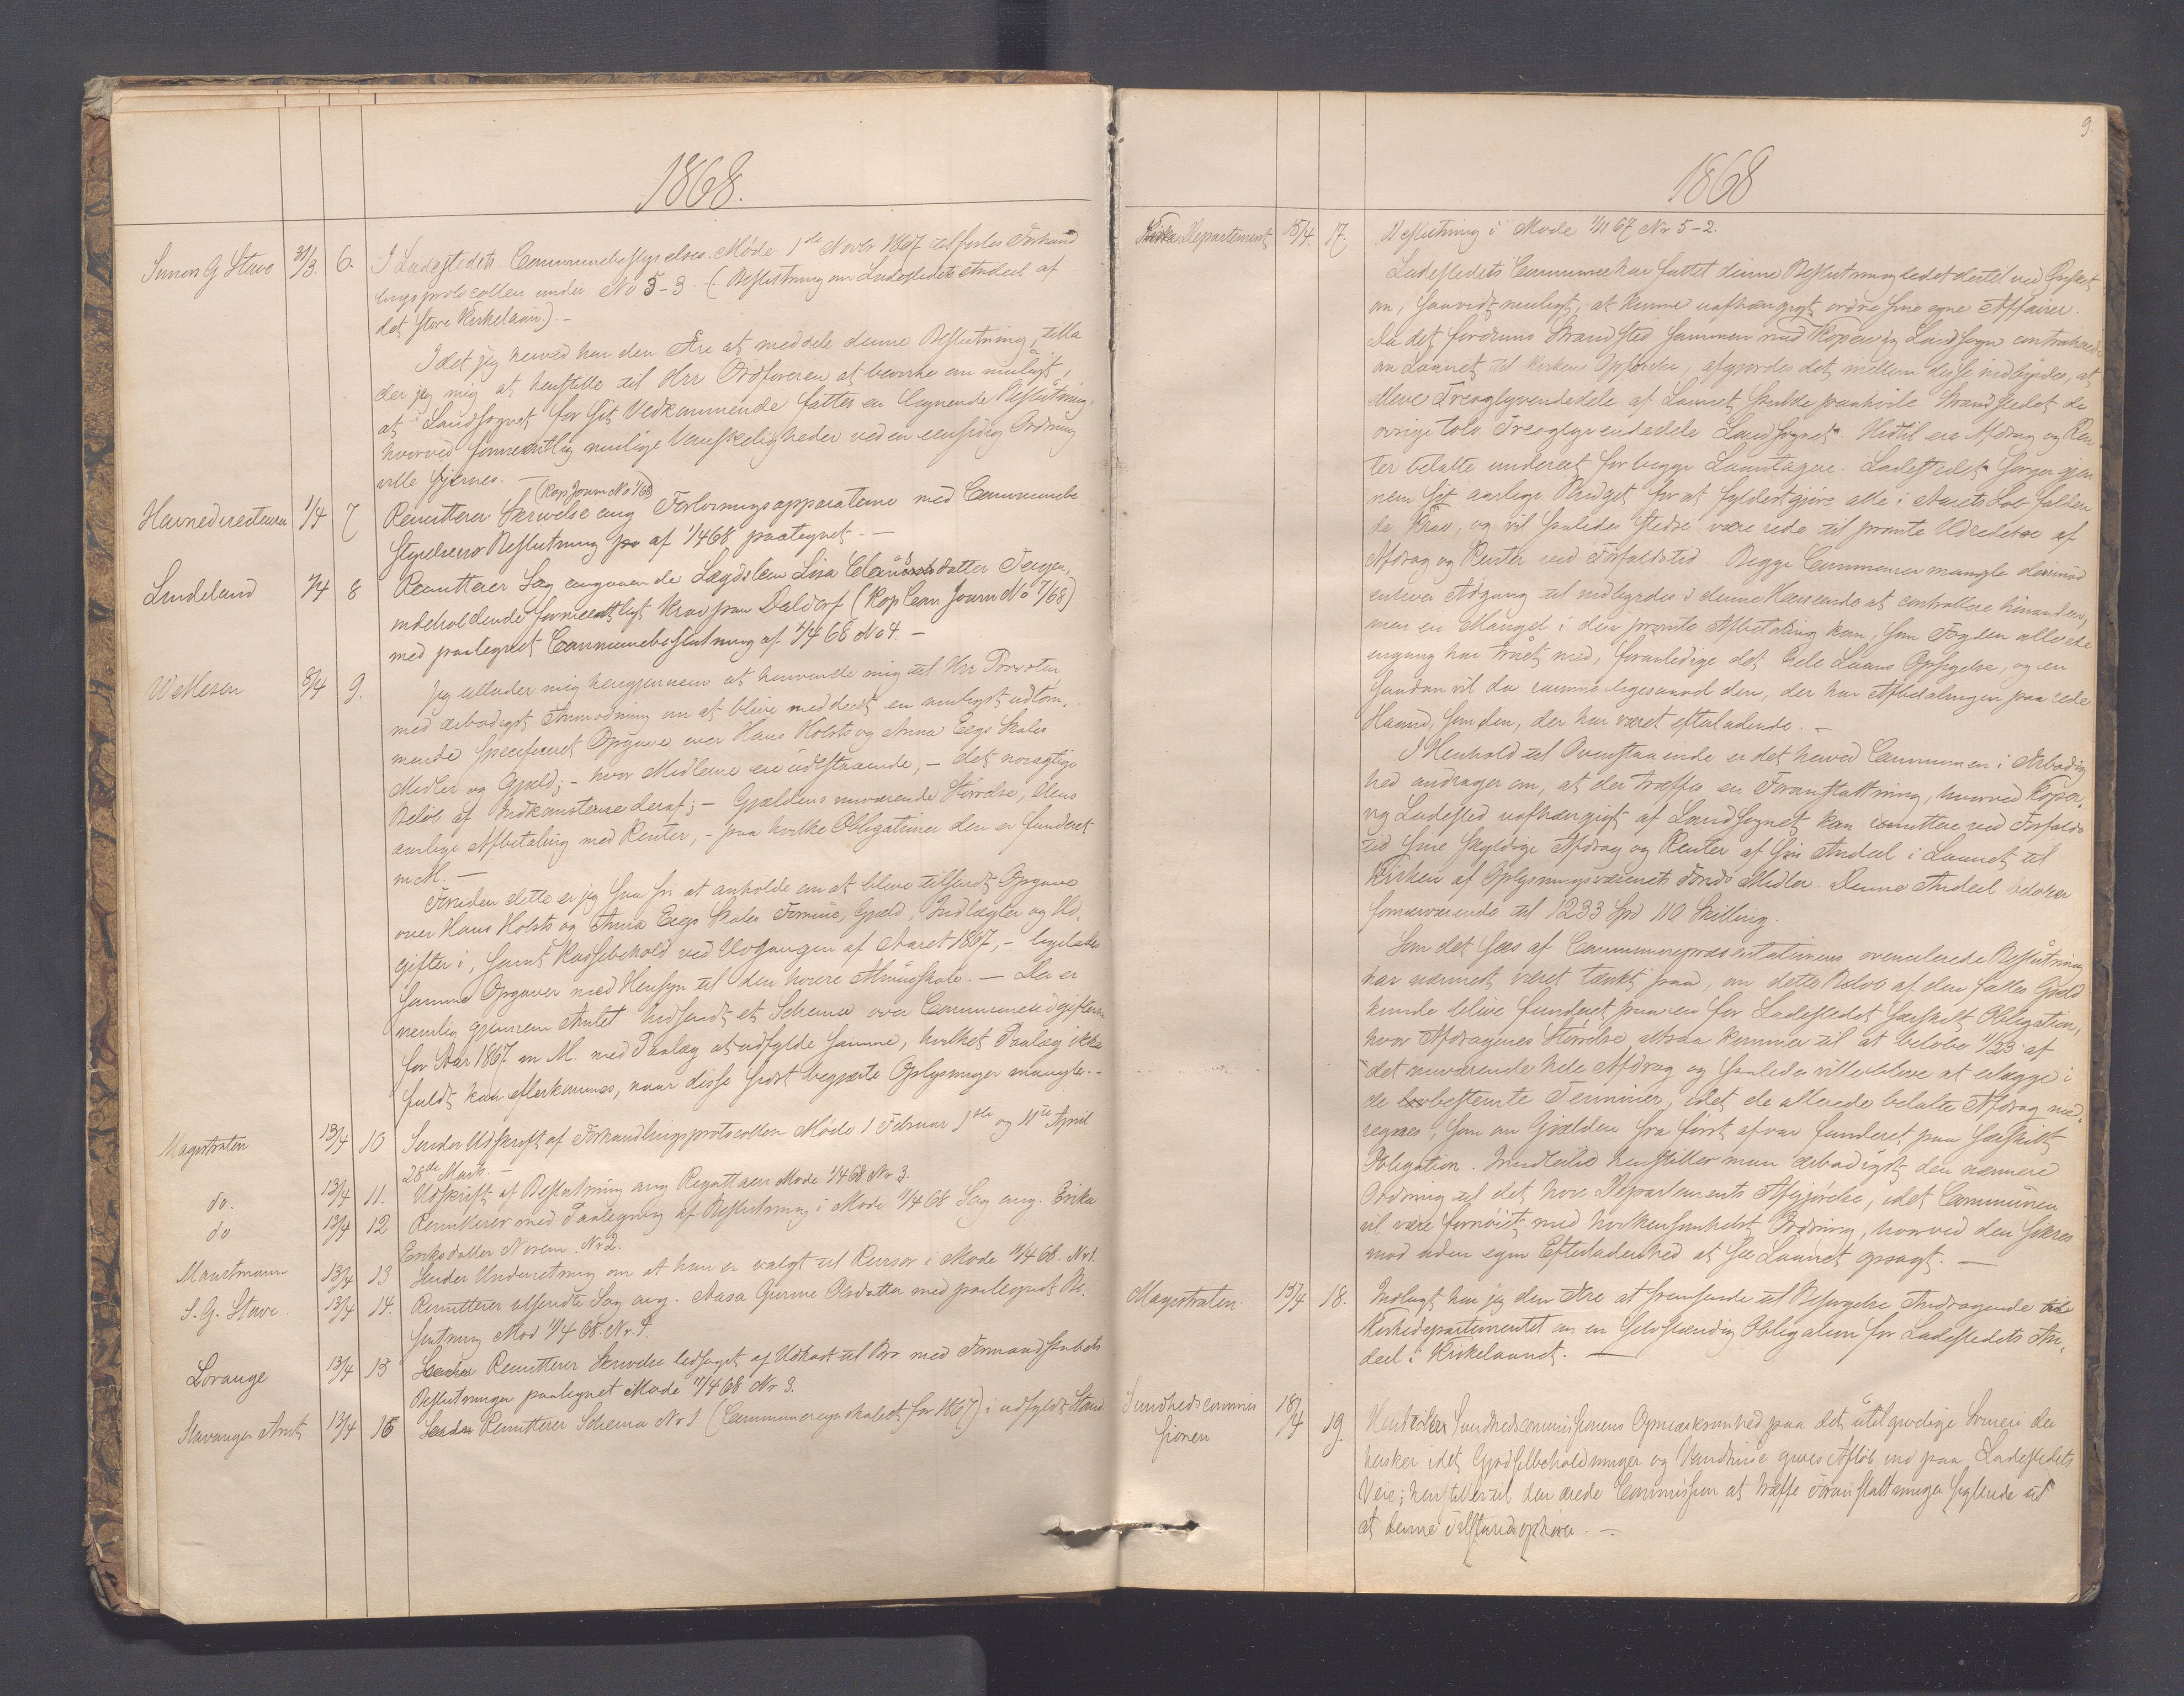 1868.
Simon G Stave 31/3. 6. I Ladestedets Communebestyrelses Møde 1ste Novbr 1867 tilførtes Forhand
lingsprotocollen under No 5-3. (Beslutning om Ladestedets Andeel af
det store Kirkelaan). -
Idet jeg herved har den Ære at meddele denne Beslutning, tilla
der jeg mig at henstille til Hrr Ordføreren at bevirke om muligt,
at Landsognet for sit Vedkommende fatter en lignende Beslutning,
hvorved formeentlig mulige Vanskeligheder ved en eensidig Ordning
ville fjernes. -
(Kop Journ No 1/68)
Havnedirecteuren 1/4 7 Remitterer Skrivelse ang Fortøiningsapparaterne med Commune
styrelsens Beslutning af 1/4 68 paategnet. -
Lindeland 4 8 Remitterer Sag angaaende Lægdslem Lisa datter
indeholdende formeentligt Krav paa (Kop Journ No 7/68)
med paategnet Communebeslutning af 1/4 68 No 4. -
8/4 9. Jeg tillader mig herigjennem at henvende mig til Hrr Provsten
med ærbødigst Anmodning om at blive meddeelt en muligst udtøm-
mende specificeret Opgave over Hans Holsts og Anna Eegs Skoles
Midler og Gjæld; - hvor Midlerne ere udestaaende, - det nøiagtige
Beløb af Indkomsterne deraf; - Gjældens nuværende Størrelse, dens
aarlige Afbetaling med Renter, - paa hvilke Obligationer den er funderet
m M. -
Foruden dette er jeg saa fri at anholde om at blive tilsendt Opgave
over Hans Holsts og Anna Eegs Skoles Formue, Gjæld, Indtægter og Ud-
gifter i, samt Kassebehold ved Udgangen af Aaret 1867, - ligeledes
samme Opgaver med Hensyn til den høiere Almueskole. - Da er
nemlig gjennem Amtet hidsendt et Schema over Communeudgifterne
for Aar 1867 m M. med Paalæg at udfylde samme, hvilket Paalæg ikke
fuldt kan efterkommes, naar disse sidst begjærte Oplysninger mangle. -
Magistraten 13/4 10 Sender Udskrift af Forhandlingsprotocollen Møde 1 Februar 1ste og 11te April
28de Marts. -
do. 13/4 11. Udskrift af Beslutning ang Regattaen Møde 1/4 68 Nr 3.
do 13/4 12 Remitterer med Paategning af Beslutning i Møde 11/4 68 Sag ang. Erika
Eriksdatter Norem Nr 2.
13/4 13 Sender Underretning om at han er valgt til Revisor i Møde 11/4 68. Nr 1.
S. G. Stave 13/4 14. Remitterer tilsendte Sag ang. Aasa Gurine Olsdatter med paategnet Be-
slutning Mød 11/4 68 Nr 4.
Lorange 13/4 15 Remitterer Skrivelse ledsaget af Udkast til Bro med Formandskabets
Beslutninger paategnet Møde 11/4 68 Nr 3.
Stavanger Amt 13/4 16 Sender Remitterer Schema Nr 1 (Communeregnskabet for 1867) i udfyldt Stand
9.
1868
Kirke Departement 15/4. 17. Beslutning i Møde 1/11 67 Nr 5-2.
Ladestedets Commune har fattet denne Beslutning ledet dertil ved Ønsket
om, saavidt muligt, at kunne uafhængigt ordne sine egne Affairer.
Da det forrums Strandsted sammen med Kopervig Landsogn contraherede
om Laanet til Kirkens Opførelse, afgjordes det mellem disse indbyrdes, at
elleve Treogtyvendedele af Laanet skulde paahvile Strandstedet de
øvrige tolv Treogtyvendedele Landsognet. Hidtil ere Afdrag og Ren
ter betalte undereet for begge Laantagere. Ladestedet sørger gjen
nem sit aarlige Budget for at fyldestgjøre alle i Aarets Løb falden
de Krav, og vil saaledes stedse være rede til promte Udredelse af
Afdrag og Renter ved Forfaldstid. Begge Communer mangle derimod
enhver Adgang til indbyrdes i denne Henseende at controllere hinanden,
men en Mangel i den promte Afbetaling kan, som Fogden allerede
engang har truet med, foranledige det hele Laans Opsigelse, og en
saadan vil da ramme ligesaavel den, der har Afbetalingen paa rede
Haand, som den, der har været efterladende. -
I Henhold til Ovenstaaende er det herved Communen i Ærbødig
hed andrager om, at der træffes en Foranstaltning, hvorved Koper-
vig Ladested uafhængigt af Landsognet kan remittere ved Forfalds
tid sine skyldige Afdrag og Renter af sin Andeel i Laanet til
Kirken af Oplysningsvæsenets Fonds Midler. Denne Andeel beløber
fornærværende til 1233 Spd 110 Skilling.
Som det sees af Communerepræsentationens ovenciterede Beslutning
har nærmest været tænkt paa, om dette Beløb af den fælles Gjæld
kunde blive funderet paa en for Ladestedet særskilt Obligation,
hvor Afdragenes Størrelse altsaa kommer til at beløbe 11/23 af
det nuværende hele Afdrag og saaledes ville blive at erlægge i
de bestemte Terminer, idet de allerede betalte Afdrag med
regnes, som om Gjælden fra først af var funderet paa særskilt
Obligation. Imidlertid henstiller man ærbødigst den nærmere
Ordning til det høie Departements Afgjørelse, idet Communen
vil være fornøiet med hvilkensomhelst Ordning, hvorved den sikres
mod uden egen Efterladenhed at see Laanet opsagt. -
Magistraten 15/4 18. Indlagt har jeg den Ære at fremsende til Besørgelse Andragende til
Kirkedepartementet om en selvstændig Obligation for Ladestedets An-
deel i Kirkelaanet. -
Sundhedscommis
sionen 18/4 19. Sundhedscommissionens Opmærksomhed paa det utilgivelige der
hersker idet Gjødselbeholdninger og Vandhuse gives Afløb ind paa Ladestedets
Veie; henstiller til den ærede Commission at træffe Foranstaltninger sigtende til
at denne Tilstand ophører. -